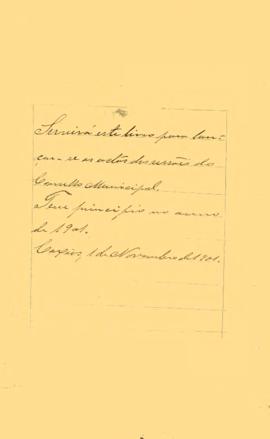 Servirá este livro para lan-
çar-se as actas das sessões do
Conselho Municipal.
Teve principio no anno
de 1901.
Caxias, 1 de Novembro de 1901.